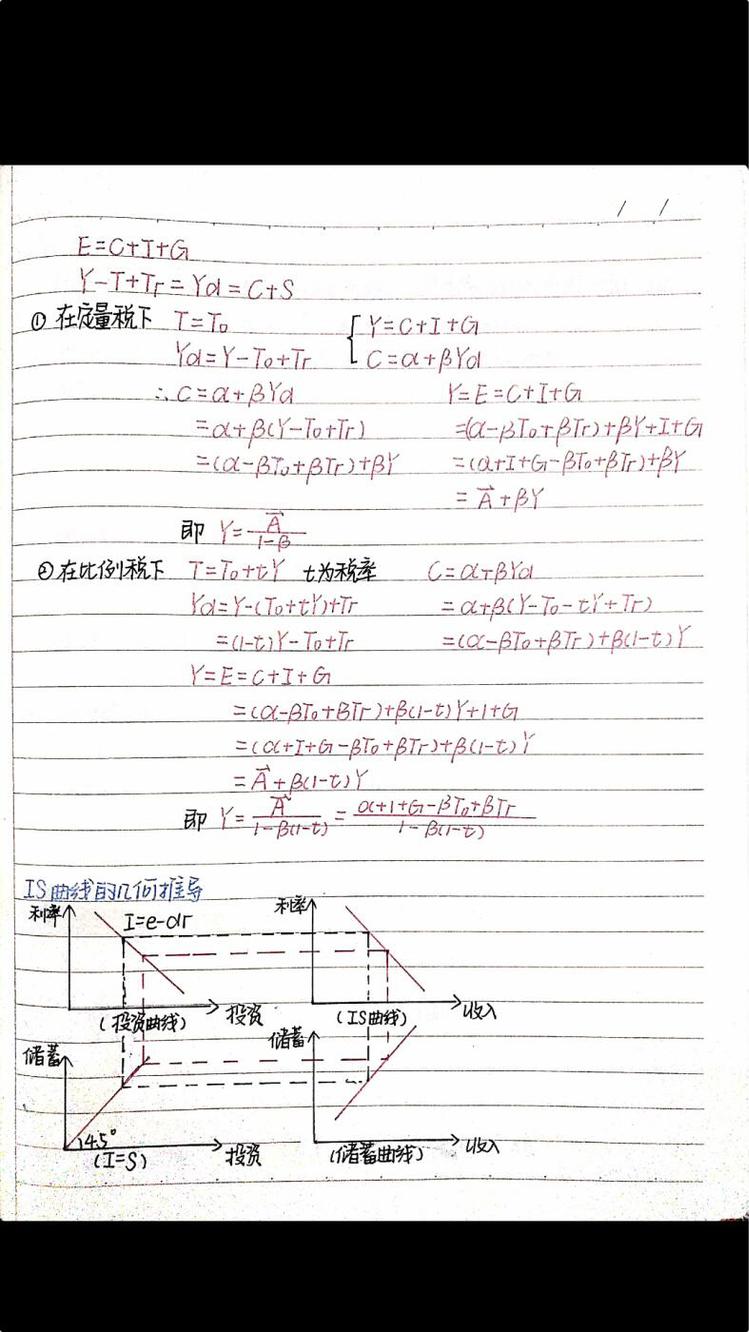 / /
E=C+I+G
Y-T+Tr=Yd=C+S
① 在定量税下 T=T₀ { Y=C+I+G
Yd=Y-T₀+Tr C=α+βYd
∴C=α+βYd Y=E=C+I+G
=α+β(Y-T₀+Tr) =(α-βT₀+βTr)+βY+I+G
=(α-βT₀+βTr)+βY =(α+I+G-βT₀+βTr)+βY
=A⃗+βY
即 Y=A⃗/(1-β)
② 在比例税下 T=T₀+tY t为税率 C=α+βYd
Yd=Y-(T₀+tY)+Tr =α+β(Y-T₀-tY+Tr)
=(1-t)Y-T₀+Tr =(α-βT₀+βTr)+β(1-t)Y
Y=E=C+I+G
=(α-βT₀+βTr)+β(1-t)Y+I+G
=(α+I+G-βT₀+βTr)+β(1-t)Y
=A⃗+β(1-t)Y
即 Y=A⃗/(1-β(1-t))=(α+I+G-βT₀+βTr)/(1-β(1-t))
IS曲线的几何推导
利率 I=e-dr 利率
(投资曲线) 投资 (IS曲线) 收入
储蓄 储蓄
45°
(I=S) 投资 (储蓄曲线) 收入